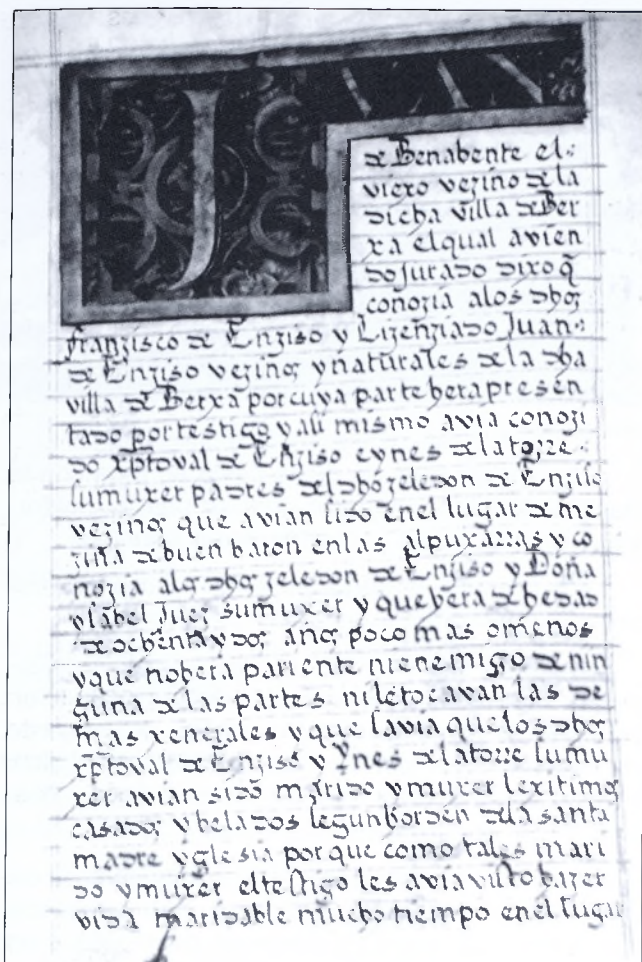 JUAN
de Benabente el
viexo vezino de la
dicha villa de Ber
xa el qual avien
do Jurado dixo q̃
conozia a los dhos
franzisco de Enziso y Lizenziado Juan
de Enziso vezinos y naturales de la dha
villa de Berxa por cuya parte hera presen
tado por testigo y asi mismo avia conozi
do xp̃toval de Enziso e ynes de la torre
su muxer padres del dho zeledon de Enziso
vezinos que avian sido en el lugar de me
zina de buen baron en las alpuxarras y co
nozia a los dhos zeledon de Enziso y Doña
ysabel Juez su muxer y que hera de hedad
de ochenta y dos años poco mas o menos
y que no hera pariente ni enemigo de nin
guna de las partes ni le tocavan las de
mas xenerales y que savia que los dhos
xp̃toval de Enziso y Ynes de la torre su mu
xer avian sido marido y muxer lexitimos
casados y belados segun horden de la santa
madre yglesia por que como tales mari
do y muxer el testigo les avia visto hazer
vida maridable mucho tiempo en el lugar